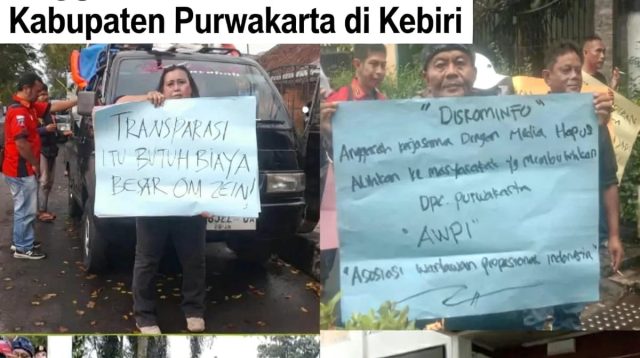 Kabupaten Purwakarta di Kebiri
TRANSPARASI
ITU BUTUH BIAYA
BESAR OM ZEIN!
"DISKOMINFO"
Anggaran kerjasama Dengan Media Hapus
Alihkan ke masyarakat yg membutuhkan
DPC. PURWAKARTA
"AWPI"
"Asosiasi wartawan propesional indonesia"